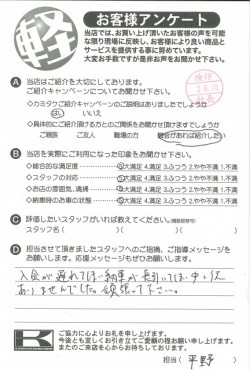 軽
お客様アンケート
当店では、お買い上げ頂いたお客様の声を可能
な限り現場に反映し、お客様により良い商品と
サービスを提供する事に努めています。
大変お手数ですが是非お声をお聞かせ下さい。
A 当店はご紹介を大切にしております。
ご紹介キャンペーンについてお聞かせ下さい。
・カミタケご紹介キャンペーンのご説明はありましたでしょうか
はい いいえ
・具体的にご紹介頂ける方とのご関係をお聞かせ頂けますでしょうか
ご親族 ご友人 職場の方 機会があれば紹介したい
B 当店を実際にご利用になった印象をお聞かせ下さい。
・総合的な満足度 5.大満足 4.満足 3.ふつう 2.やや不満 1.不満
・スタッフの対応 5.大満足 4.満足 3.ふつう 2.やや不満 1.不満
・お店の雰囲気、清掃 5.大満足 4.満足 3.ふつう 2.やや不満 1.不満
・納車時のお車の状態 5.大満足 4.満足 3.ふつう 2.やや不満 1.不満
C 評価したいスタッフがいれば教えてください。(複数回答可)
スタッフ名( )( )( )
D 担当させて頂きましたスタッフへのご指摘、ご指導メッセージを
お願いします。応援メッセージもぜひお願いします。
入金が遅れてしまい納車が長引いてしまい申し訳
ありませんでした。頑張って下さい。
K
ご協力に心よりお礼を申し上げます。
今後とも宜しくお引き立てご愛顧の程お願い申し上げます。
またのご来店を心からお待ちしております。
担当(平野)